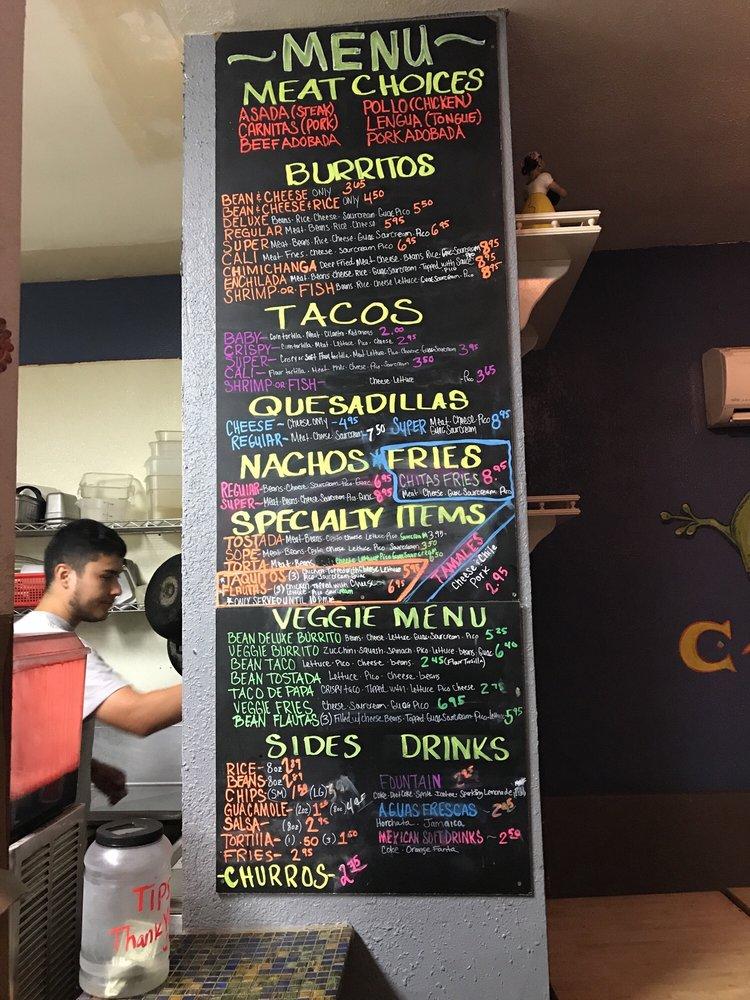 ~MENU~
MEAT CHOICES
ASADA (STEAK) POLLO (CHICKEN)
CARNITAS (PORK) LENGUA (TONGUE)
BEEF ADOBADA PORK ADOBADA
BURRITOS
BEAN & CHEESE ONLY 3.65
BEAN & CHEESE & RICE ONLY 4.50
DELUXE Beans. Rice. Cheese. Sourcream. Guac. Pico 5.50
REGULAR Meat. Beans. Rice. Cheese 5.95
SUPER Meat. Beans. Rice. Cheese. Guac. Sourcream. Pico 6.95
CALI Meat. Fries. Cheese. Sourcream. Pico 6.95
CHIMICHANGA Deep Fried. Meat. Cheese. Beans. Rice. Guac. Sourcream 8.95
ENCHILADA Meat. Beans. Cheese. Rice. Guac. Sourcream. Topped with Sauce Pico 8.95
SHRIMP OR FISH Beans. Rice. Cheese. Lettuce. Guac. Sourcream. Pico 8.95
TACOS
BABY- Corn tortilla. Meat. Cilantro. 2.00
CRISPY- Corn tortilla. Meat. Lettuce. Pico. Cheese 2.95
SUPER- Crispy or Soft Flour tortilla. Meat. Lettuce. Pico. Cheese. Guac. Sourcream 3.95
CALI- Flour tortilla. Meat. Cheese. Sourcream 3.50
SHRIMP OR FISH- Cheese Lettuce Pico 3.65
QUESADILLAS
CHEESE- Cheese only -4.95 SUPER Meat. Cheese. Pico Guac. Sourcream 8.95
REGULAR- Meat. Cheese. Sourcream -7.50
NACHOS FRIES
REGULAR- Beans. Cheese. Sourcream. Pico. Guac 6.95 CHITAS FRIES 8.95
SUPER- Meat. Beans. Cheese. Sourcream. Pico. Guac 8.95 Meat. Cheese. Guac. Sourcream. Pico
SPECIALTY ITEMS
TOSTADA- Meat. Beans. Cheese. Lettuce. Pico. 3.95
SOPE- Meat. Beans. Cheese. Lettuce. Pico. Sourcream 3.50
TORTA- Meat. Beans. Cheese. Lettuce. Pico. Guac. Sourcream
TAQUITOS (3) Chicken Topped with Cheese Lettuce Pico. Sourcream. Guac 5.95
FLAUTAS- (3) Chicken Topped with Cheese Lettuce. Pico. Sourcream 6.95
*ONLY SERVED UNTIL 10PM*
TAMALES
Cheese. Chile
Pork
2.95
VEGGIE MENU
BEAN DELUXE BURRITO Beans. Cheese. Lettuce. Guac. Sourcream. Pico 5.25
VEGGIE BURRITO Zucchini. Squash. Spinach. Pico. Lettuce. beans. Guac 6.40
BEAN TACO Lettuce. Pico. Cheese. beans 2.45 (Flour Tortilla)
BEAN TOSTADA Lettuce. Pico. Cheese. beans
TACO DE PAPA CRISPY taco. Topped with. Lettuce Pico Cheese 2.75
VEGGIE FRIES Cheese. Sourcream. Guac. Pico 6.95
BEAN FLAUTAS (3) Filled w/ cheese. Beans. Topped Guac. Sourcream. Pico. Lettuce 5.95
SIDES DRINKS
RICE- 8oz 2.89
BEANS 8oz 2.89
CHIPS (SM) 1.50 (LG)
GUACAMOLE- (2oz) (8oz) 4.95
SALSA- (8oz) 2.95
TORTILLA- (1) .50 (3) 1.50
FRIES- 2.95
-CHURROS- 2.75
FOUNTAIN 2.25
Coke. Diet Coke. Sprite. Icetea. Sparkling Lemonade
AGUAS FRESCAS ~
Horchata. Jamaica
MEXICAN SOFT DRINKS ~ 2.50
Coke. Orange Fanta
TIPS
Thank
C